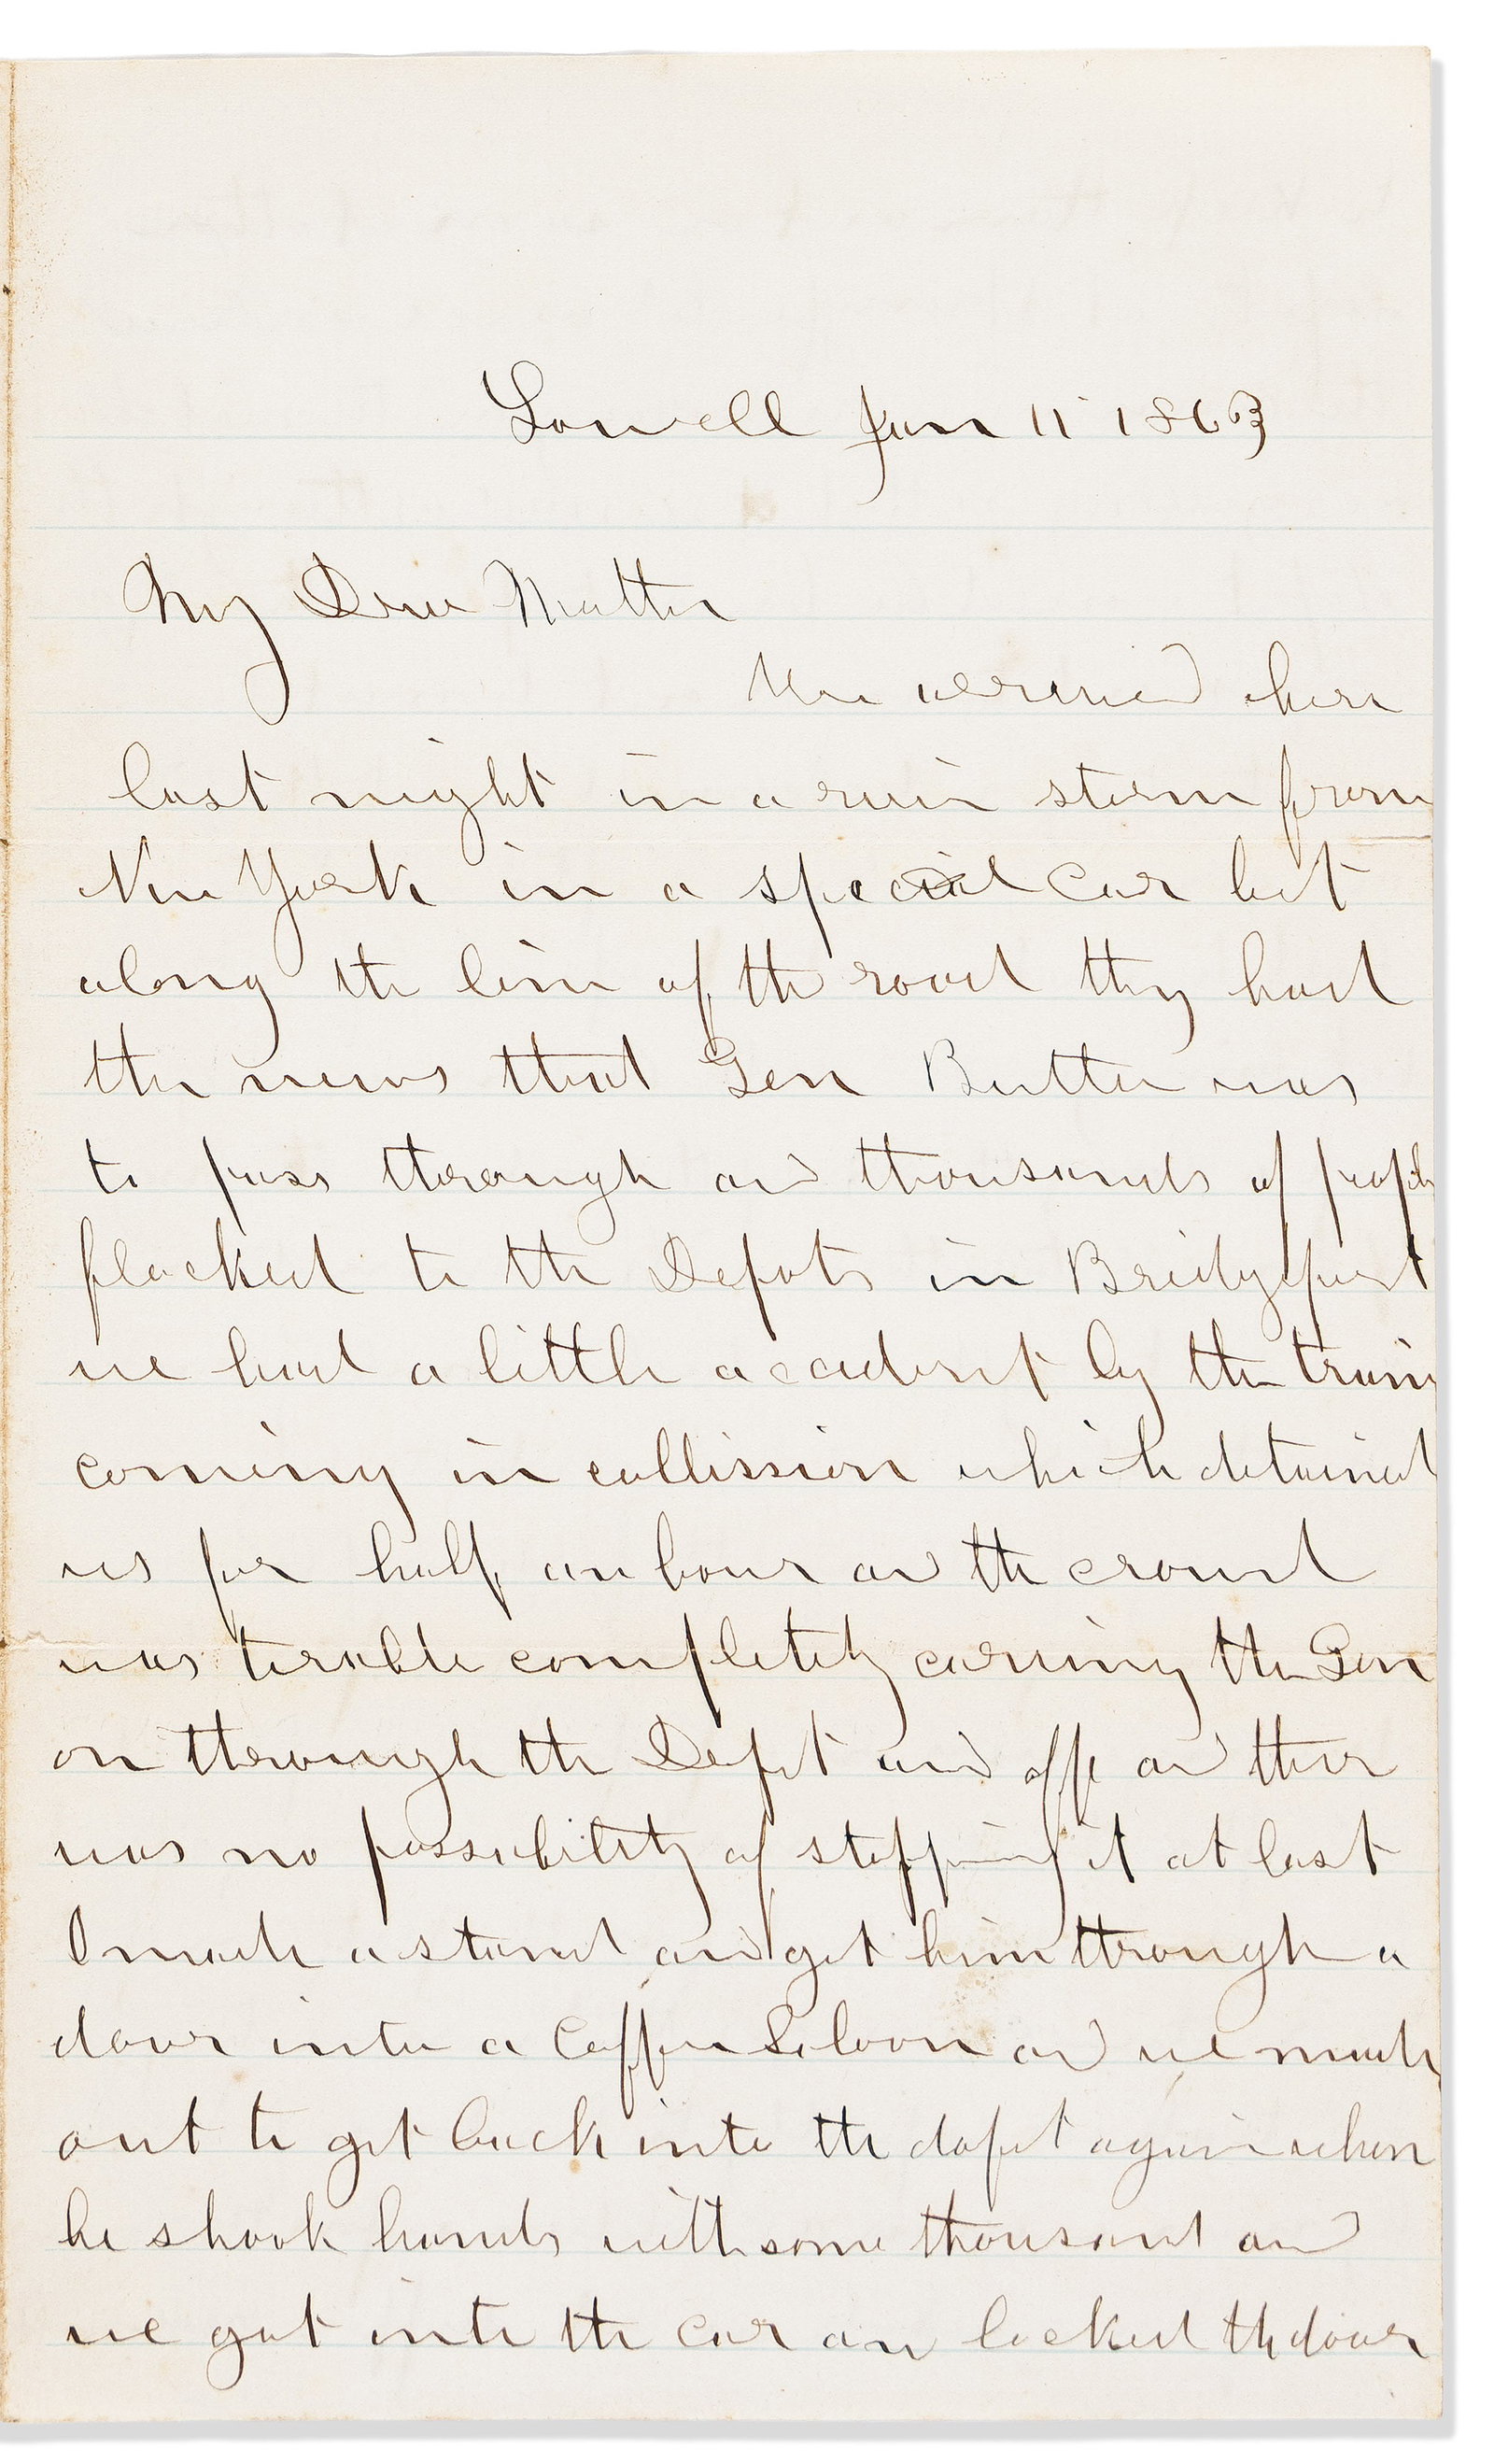 Lowell Jan 11 1863
My Dear Mattie
We arrived here
last night in a rain storm from
New York in a special car but
along the line of the road they had
the news that Gen Butler was
to pass through and thousands of people
flocked to the Depots in Bridgeport
we had a little accident by the train
coming in collission which detained
us for half an hour and the crowd
was terable completely carring the Gen
on through the Depot and off and there
was no possibility of stopping it at last
I made a stand and got him through a
door into a Coffee Saloon and we made
out to get back into the depot again when
he shook hands with some thousand and
we got into the car an locked th door